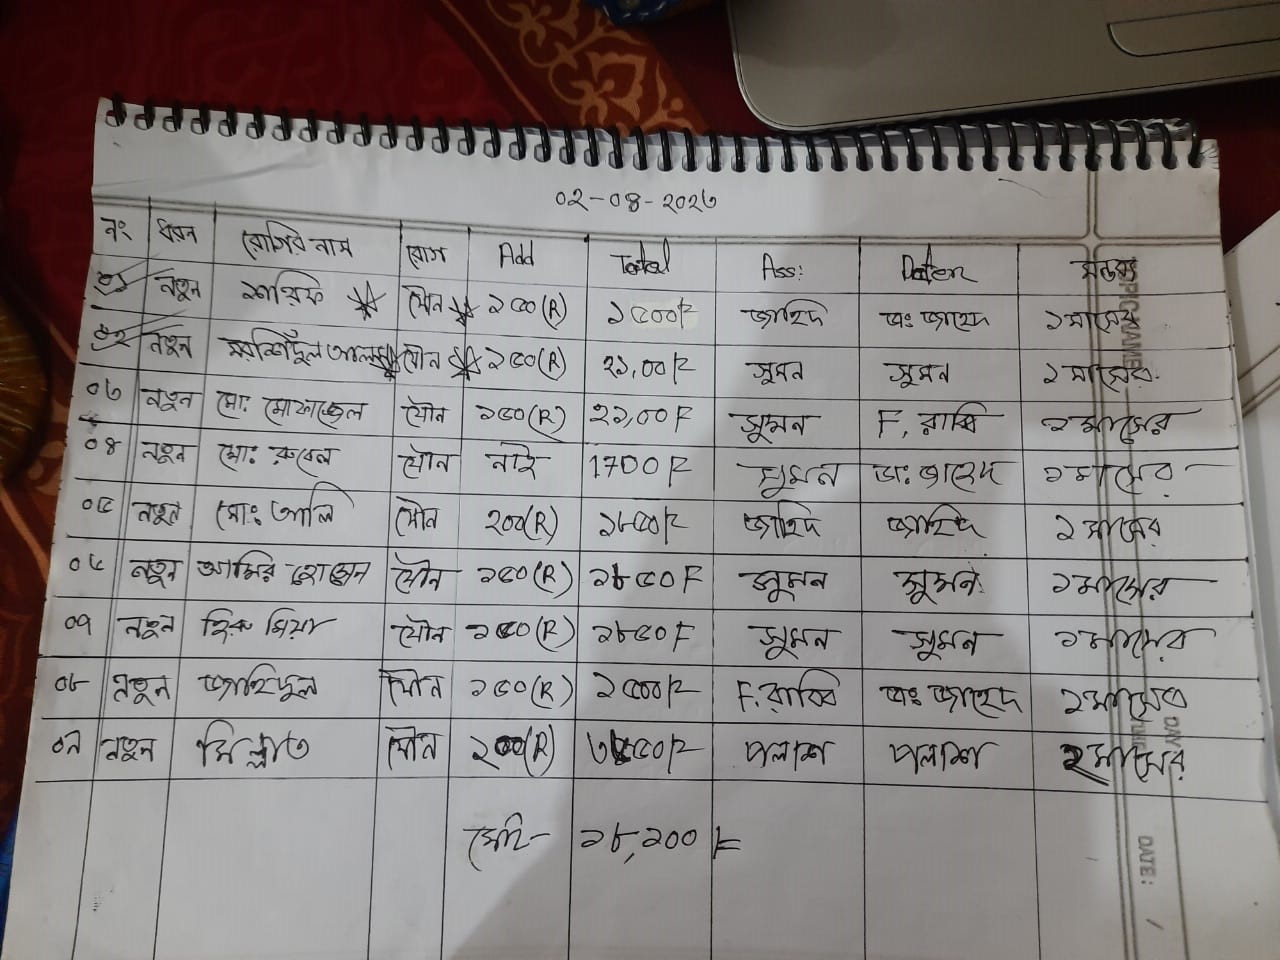 ০২-০৪-২০২৩
নং ধরন রোগির নাম রোগ Add Total Ass: Dater মন্তব্য
০১ নতুন শারিফ যৌন ১৫০(R) ১৫০০/= জাহিদ ডাঃ জাহেদ ১ মাসের
০২ নতুন আলম যৌন ১৫০(R) ২১,00/= সুমন সুমন ১ মাসের
০৩ নতুন মো: মোফাজ্জেল যৌন ১৫০(R) ২১,00/= সুমন F. রাব্বি ১ মাসের
০৪ নতুন মো: রুবেল যৌন নাই 1700/= সুমন ডা: জাহেদ ১ মাসের
০৫ নতুন মো: আলি যৌন ২০০(R) ১৮৫০/= জাহিদ জাহিদ ১ মাসের
০৬ নতুন আমির হোসেন যৌন ১৫০(R) ১৮৫০/= সুমন সুমন ১ মাসের
০৭ নতুন হিরু মিয়া যৌন ১৫০(R) ১৮৫০/= সুমন সুমন ১ মাসের
০৮ নতুন জাহিদুল যৌন ১৫০(R) ১৫০০/= F. রাব্বি ডাঃ জাহেদ ১ মাসের
০৯ নতুন মিল্লাত যৌন ২০০(R) পলাশ পলাশ ২ মাসের
মোট- ১৮,২০০/=
DATE: /